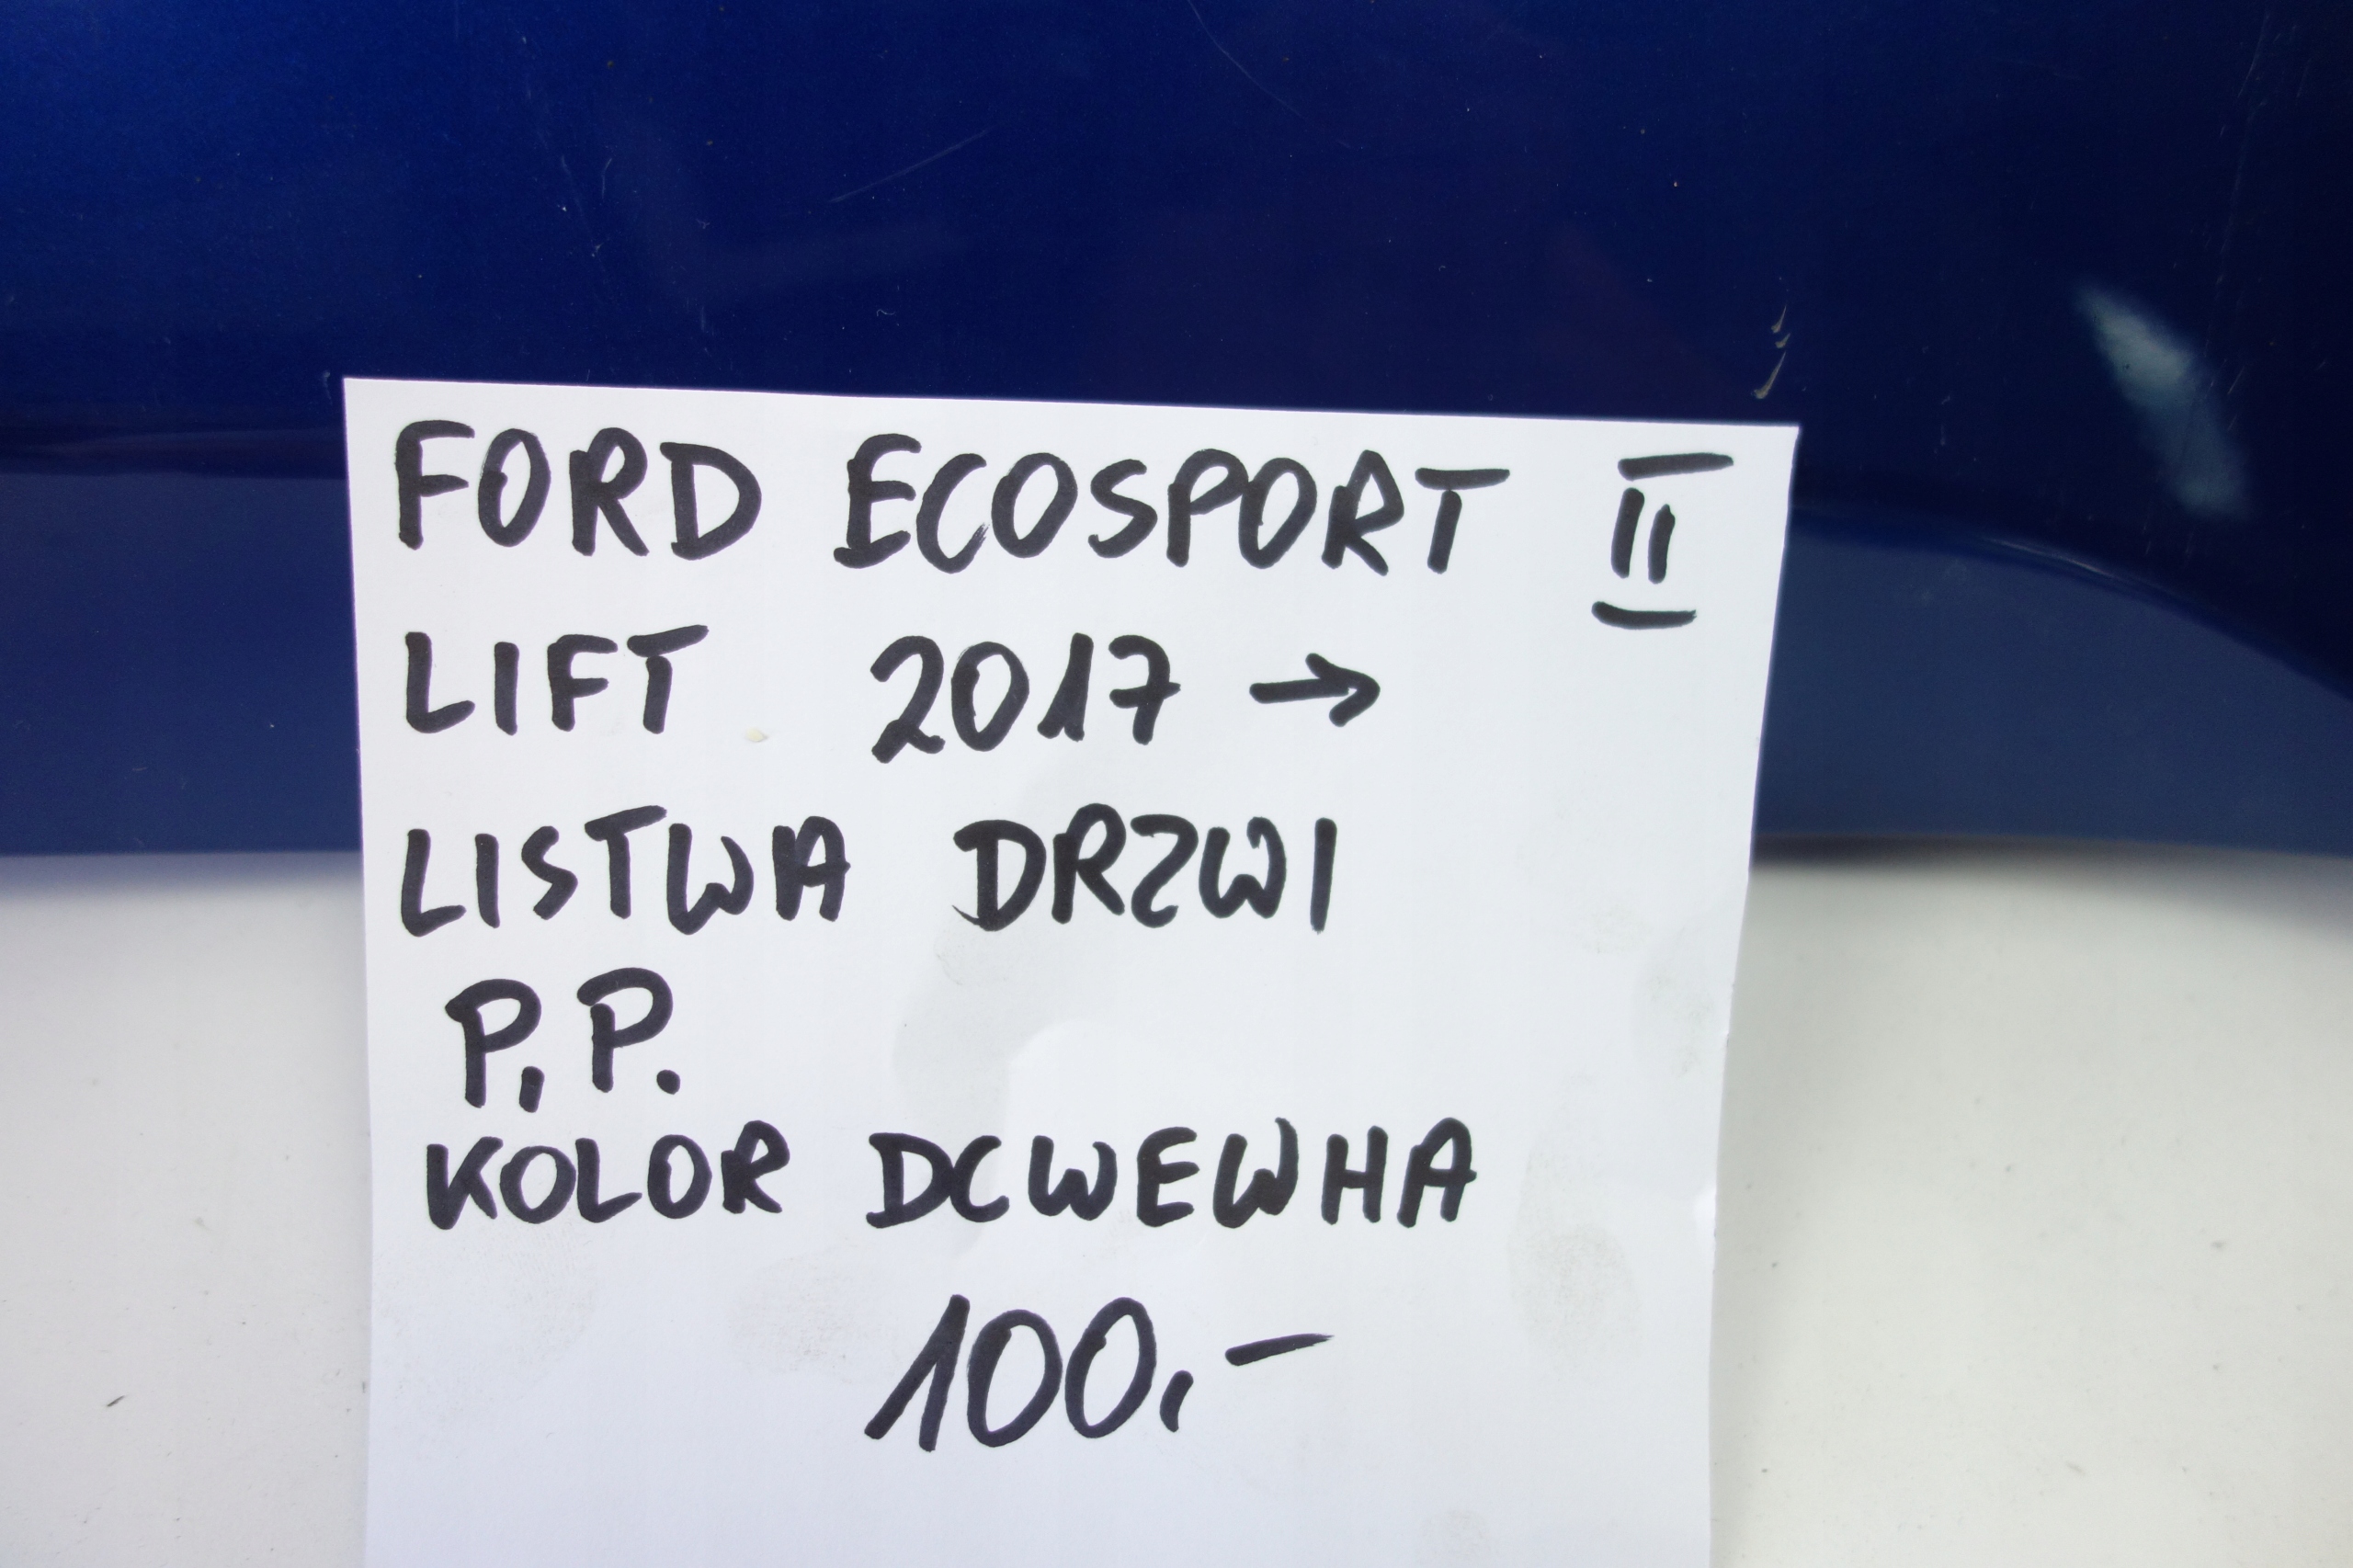 FORD ECOSPORT II
LIFT 2017 →
LISTWA DRZWI
P,P.
KOLOR DCWEWHA
100,-